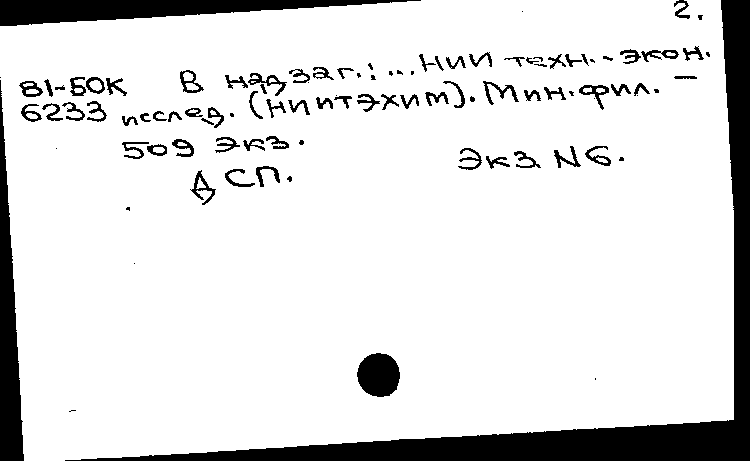 2.
81-50К В надзаг.: ... НИИ техн.-экон.
6233 исслед. (НИИТЭХИМ). Мин. фил. –
509 экз.
ДСП. Экз. N6.